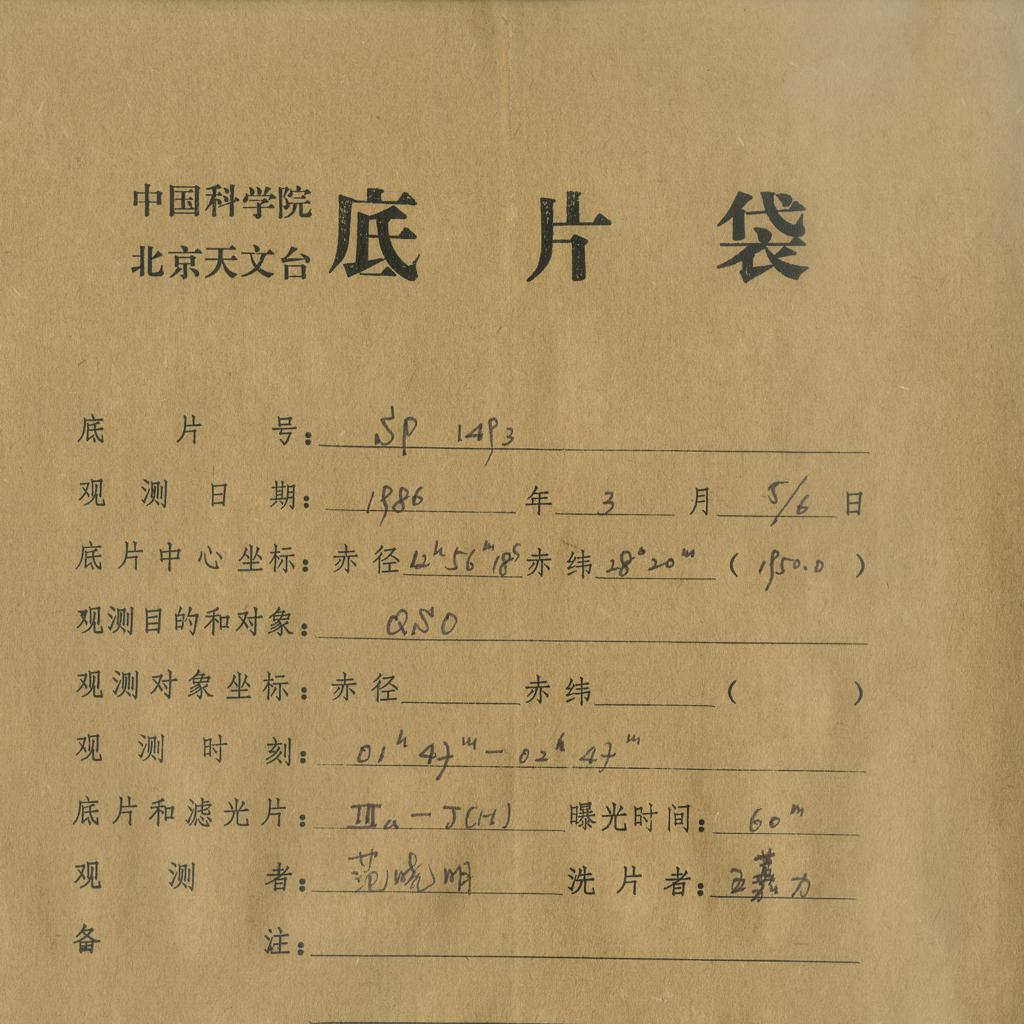 中国科学院
北京天文台 底片袋
底片号: SP 1493
观测日期: 1986 年 3 月 5/6 日
底片中心坐标: 赤径 12ʰ56ᵐ18ˢ 赤纬 28°20ᵐ ( 1950.0 )
观测目的和对象: QSO
观测对象坐标: 赤径 赤纬 ( )
观测时刻: 01ʰ 47ᵐ - 02ʰ 47ᵐ
底片和滤光片: IIIa-J(H) 曝光时间: 60ᵐ
观测者: 范晓明 洗片者: 力
备注: